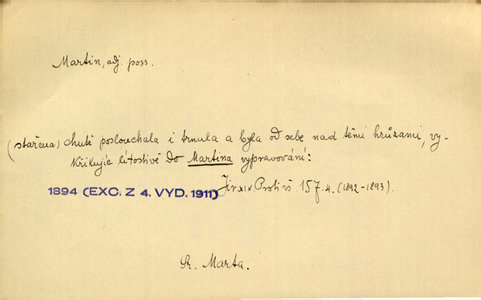 Martin, adj. poss.
(stařena) chutě poslouchala i trnula a byla od sebe nad těmi hrůzami, vy-
křikujíc lítostivě do Martina vypravování:
1894 (EXC. Z 4. VYD. 1911) Jir XIX Protiv 157. 4. (1892-1893).
Marta.